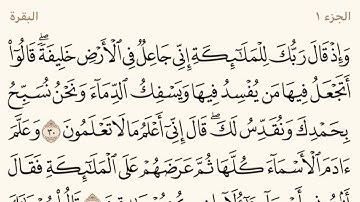 الجزء ١ البقرة
وَإِذۡ قَالَ رَبُّكَ لِلۡمَلَٰٓئِكَةِ إِنِّي جَاعِلٞ فِي ٱلۡأَرۡضِ خَلِيفَةٗۖ قَالُوٓاْ
أَتَجۡعَلُ فِيهَا مَن يُفۡسِدُ فِيهَا وَيَسۡفِكُ ٱلدِّمَآءَ وَنَحۡنُ نُسَبِّحُ
بِحَمۡدِكَ وَنُقَدِّسُ لَكَۖ قَالَ إِنِّيٓ أَعۡلَمُ مَا لَا تَعۡلَمُونَ ٣٠ وَعَلَّمَ
ءَادَمَ ٱلۡأَسۡمَآءَ كُلَّهَا ثُمَّ عَرَضَهُمۡ عَلَى ٱلۡمَلَٰٓئِكَةِ فَقَالَ